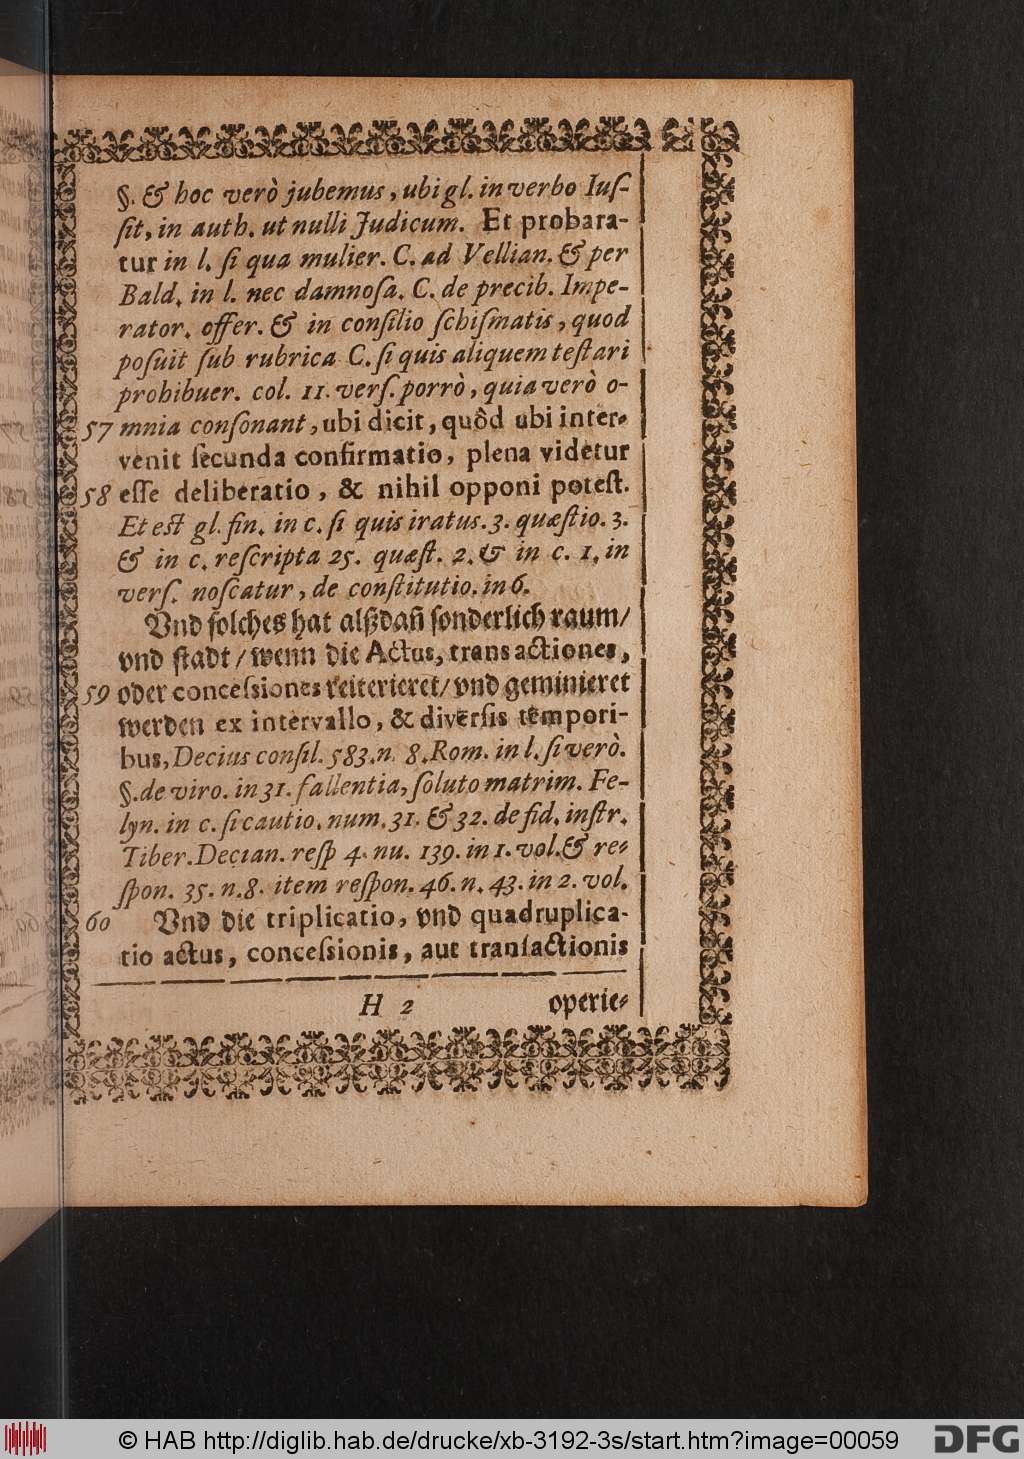 §. & hoc verò jubemus, ubi gl. in verbo Iuſ-
ſit, in auth. ut nulli Judicum. Et probara-
tur in l. ſi qua mulier. C. ad Vellian. & per
Bald. in l. nec damnoſa. C. de precib. Impe-
rator. offer. & in conſilio ſchiſmatis, quod
poſuit ſub rubrica C. ſi quis aliquem teſtari
prohibuer. col. 11. verſ. porrò, quia verò o-
57 mnia conſonant, ubi dicit, quòd ubi inter-
venit ſecunda confirmatio, plena videtur
58 eſſe deliberatio, & nihil opponi poteſt.
Et eſt gl. fin. in c. ſi quis iratus. 3. quæſtio. 3.
& in c. reſcripta 25. quæſt. 2. & in c. 1. in
verſ. noſcatur, de conſtitutio. in 6.
Vnd ſolches hat alßdañ ſonderlich raum/
vnd ſtadt/ wenn die Actus, transactiones,
59 oder conceſsiones reiterieret/ vnd geminieret
werden ex intervallo, & diverſis tempori-
bus, Decius conſil. 583. n. 8. Rom. in l. ſi verò.
§. de viro. in 31. fallentia, ſoluto matrim. Fe-
lyn. in c. ſi cautio. num. 31. & 32. de fid. inſtr.
Tiber. Decian. reſp 4. nu. 139. in 1. vol. & re-
ſpon. 35. n. 8. item reſpon. 46. n. 43. in 2. vol.
60 Vnd die triplicatio, vnd quadruplica-
tio actus, conceſsionis, aut tranſactionis
H 2 operie-
© HAB http://diglib.hab.de/drucke/xb-3192-3s/start.htm?image=00059
DFG